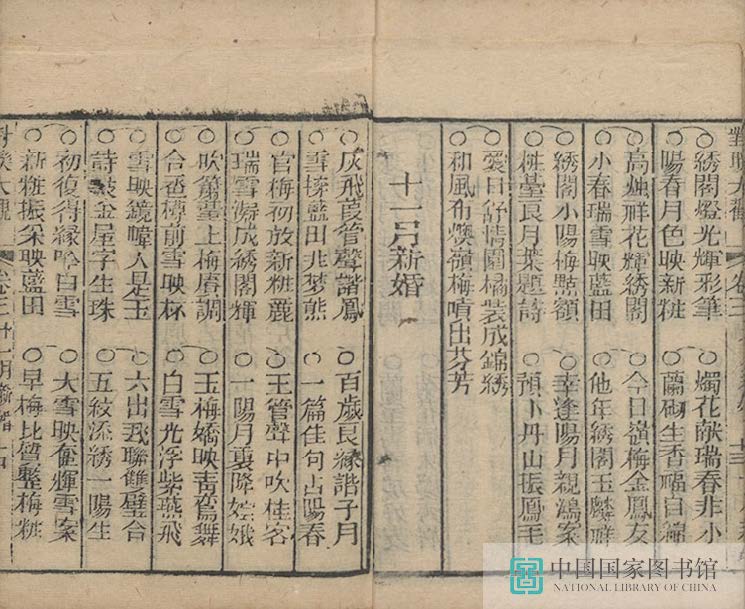 對聯大觀
卷三
十三
繡閣燈光輝彩筆
燭花献瑞春非小
陽春月色映新粧
蘭砌生香福自錦
高燭祥花輝綉閣
今日嶺梅金鳳友
小春瑞雪映藍田
他年綉閣玉麟祥
綉閣小陽梅點額
幸逢陽月親鴻案
粧臺良月葉題詩
預卜丹山振鳳毛
愛日舒情園橘裝成錦綉
和風布燠嶺梅噴出芬芳
十一月新婚
灰飛葭管聲諧鳳
百歲良緣諧子月
雪擁藍田兆夢熊
一篇佳句占陽春
官梅初放新粧麗
玉管聲中吹桂客
瑞雪凝成綉閣輝
一陽月裏降嫦娥
吹簫臺上梅唇調
玉梅嬌映青鸞舞
合卺樽前雪映杯
白雪光浮紫燕飛
雪映鏡幃人是玉
六出飛聯雙璧合
詩裁金屋字生珠
五紋添綉一陽生
初復得緣吟白雪
大雪映奩輝雪案
新粧振采映藍田
早梅比鬢整梅粧
對聯大觀
卷三
十一月新婚
十四
中国国家图书馆
NATIONAL LIBRARY OF CHINA